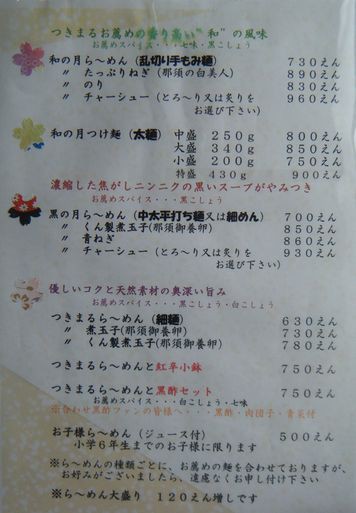 つきまるお薦めの香り高い"和"の風味
お薦めスパイス・・・七味・黒こしょう
和の月らーめん(乱切り手もみ麺) 730えん
〃 たっぷりねぎ(那須の白美人) 890えん
〃 のり 830えん
〃 チャーシュー(とろ〜り又は炙りを 960えん
お選び下さい)
和の月つけ麺(太麺) 中盛 250g 800えん
大盛 340g 850えん
小盛 200g 750えん
特盛 430g 900えん
濃縮した焦がしニンニクの黒いスープがやみつき
黒の月ら〜めん(中太平打ち麺又は細めん) 700えん
〃 くん製煮玉子(那須御養卵) 850えん
〃 青ねぎ 860えん
〃 チャーシュー(とろ〜り又は炙りを 930えん
お選び下さい)
優しいコクと天然素材の奥深い旨み
お薦めスパイス・・・黒こしょう・白こしょう
つきまるら〜めん(細麺) 630えん
〃 煮玉子(那須御養卵) 730えん
〃 くん製煮玉子(那須御養卵) 780えん
つきまるら〜めんと紅辛小鉢 750えん
つきまるら〜めんと黒酢セット 750えん
お薦めスパイス・・・白こしょう・七味
※合わせ黒酢ファンの皆様へ・・・黒酢・肉団子・青菜付
お子様ら〜めん(ジュース付) 500えん
小学6年生までのお子様に限ります
※ら〜めんの種類ごとに、お薦めの麺を合わせておりますが、
お好みがございましたら、遠慮なくお申し付け下さい
※ら〜めん大盛り 120えん増しです